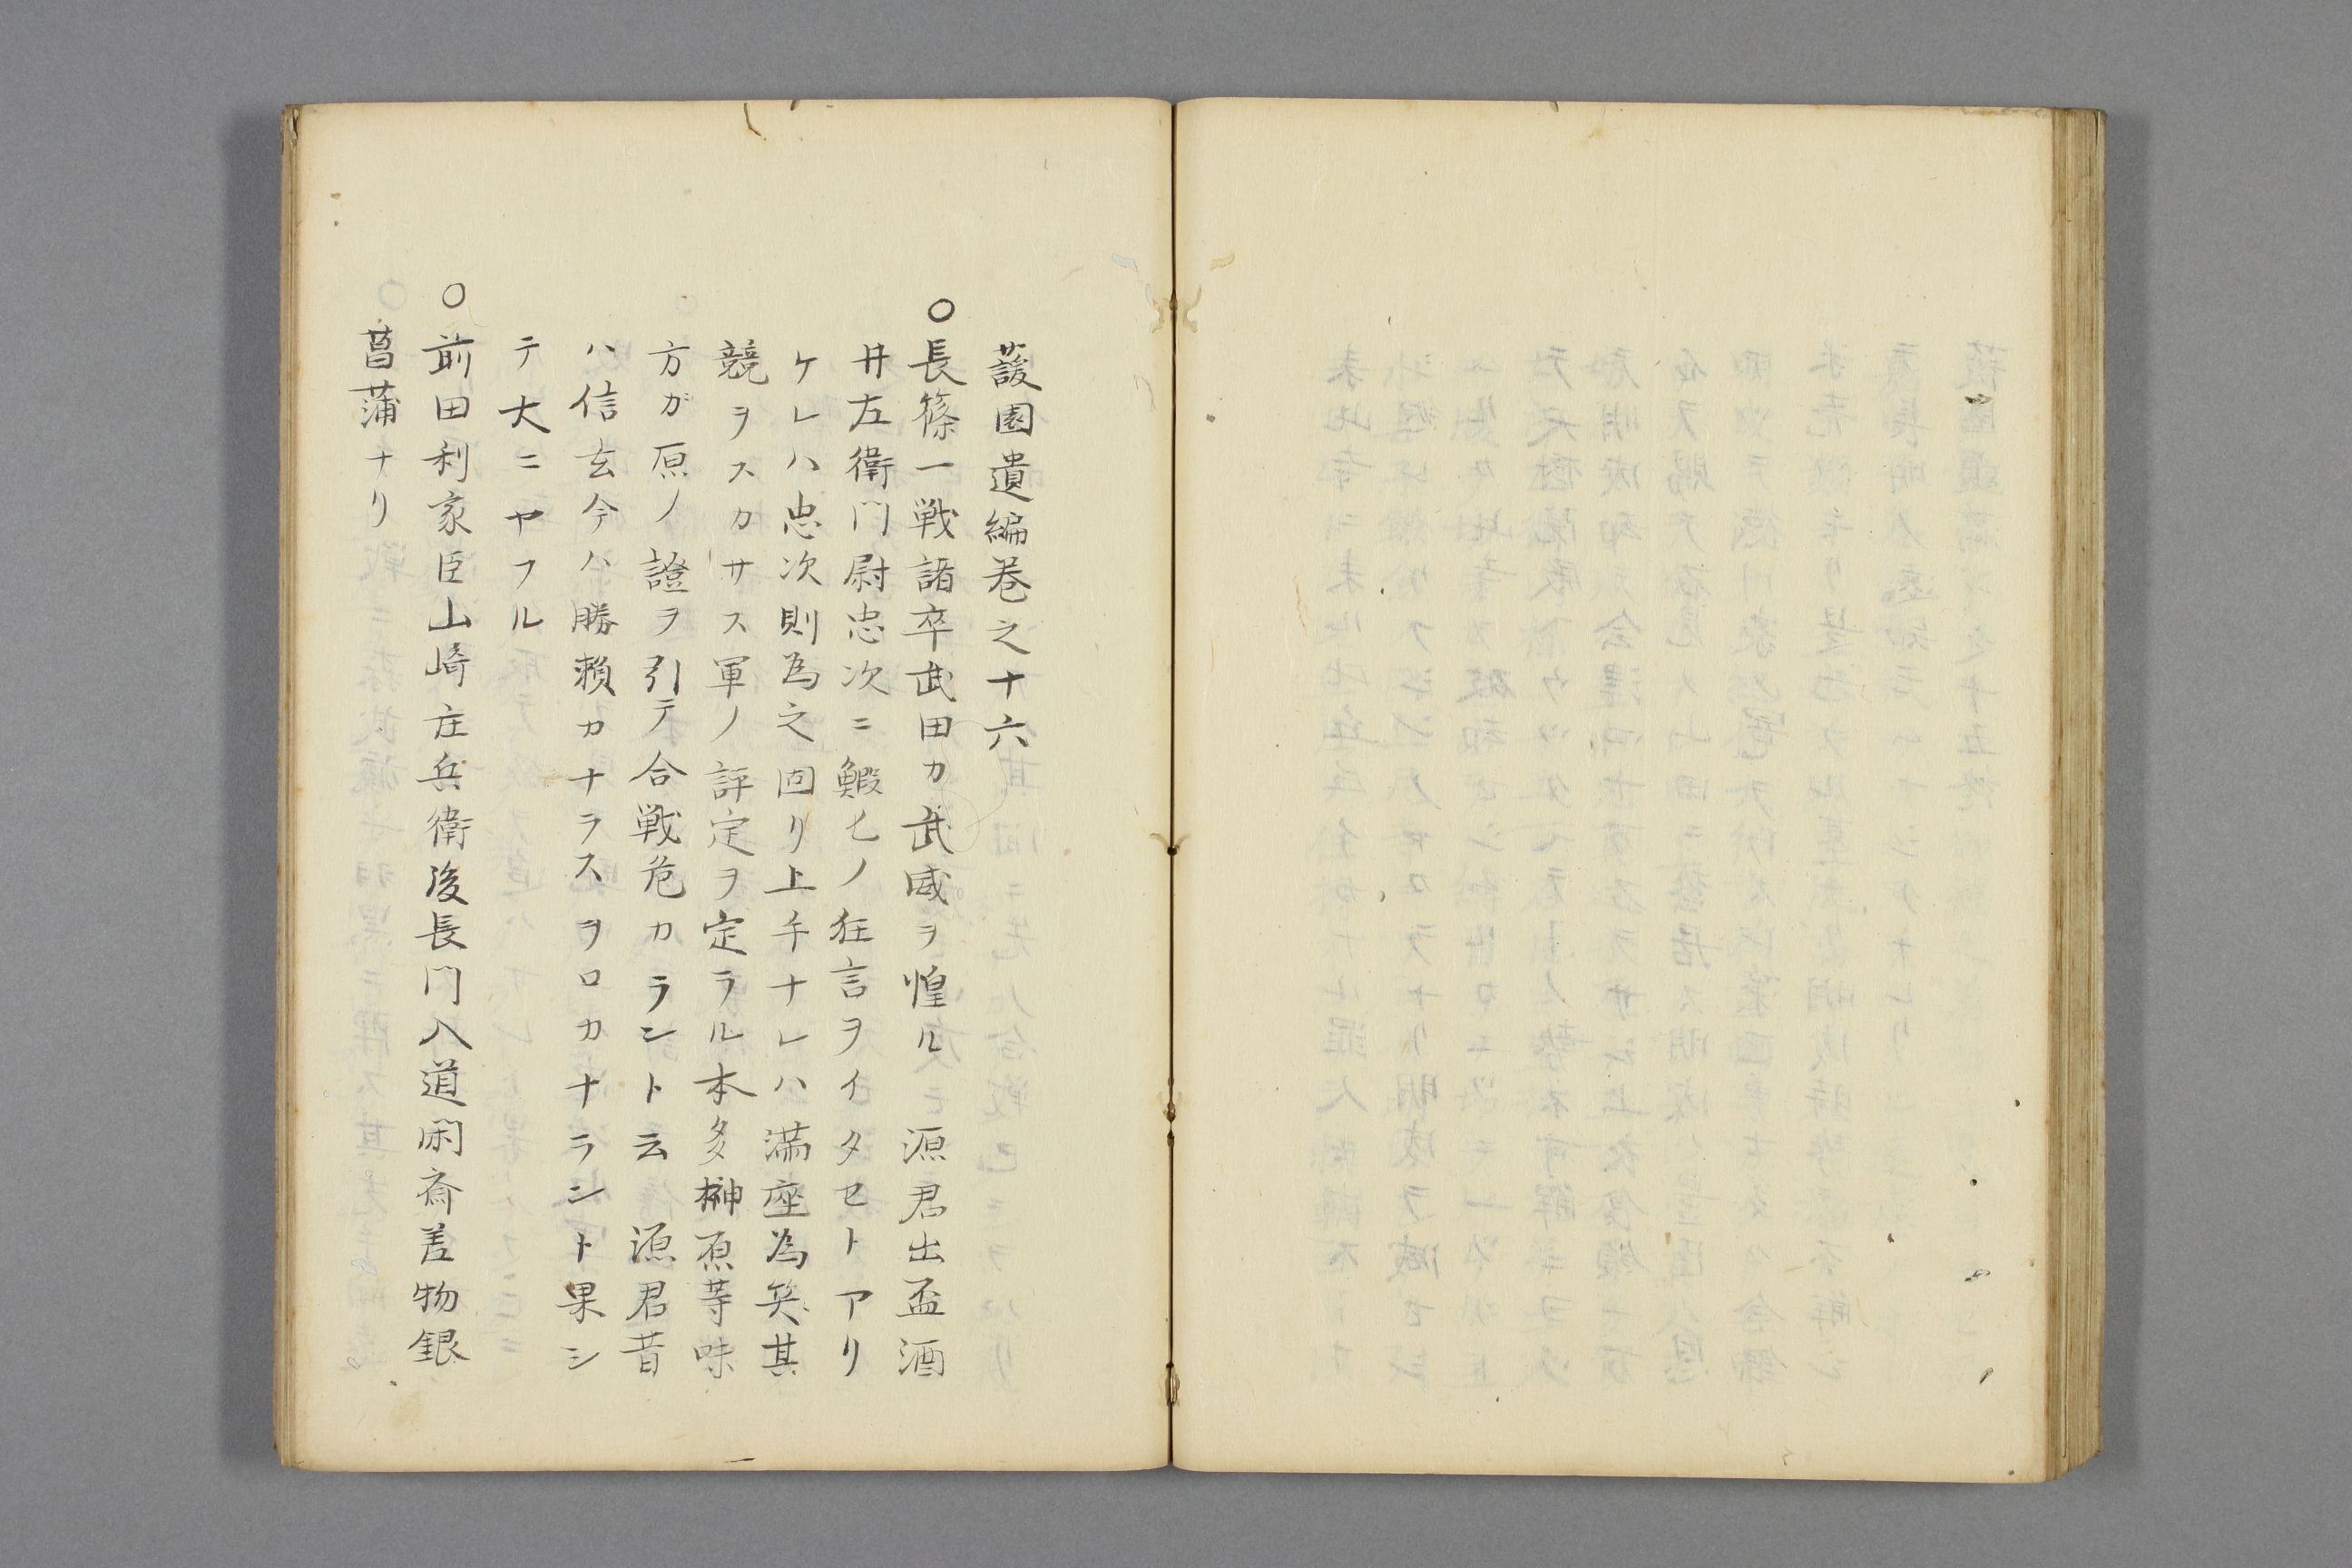 蘐園遺編巻之十六
○長篠一戦諸卒武田カ武威ヲ惶ル源君出盃酒
井左衛門尉忠次ニ鰕匕ノ狂言ヲイタセトアリ
ケレハ忠次則為之固リ上手ナレハ満座為笑其
競ヲスカサス軍ノ評定ヲ定ラル本多榊原等味
方が原ノ證ヲ引テ合戦危カラント云源君昔
ハ信玄今ハ勝頼カナラスヲロカナラント果シ
テ大ニヤフル
○前田利家臣山崎庄兵衛後長門入道閑斎差物銀
菖蒲ナリ